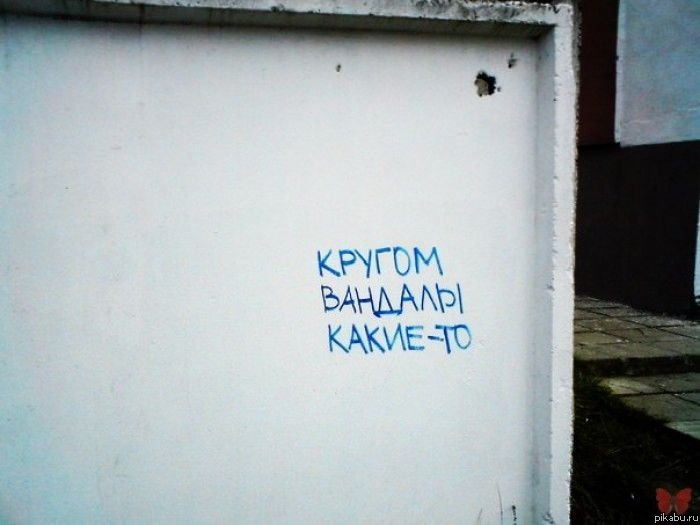 КРУГОМ
ВАНДАЛЫ
КАКИЕ-ТО
pikabu.ru